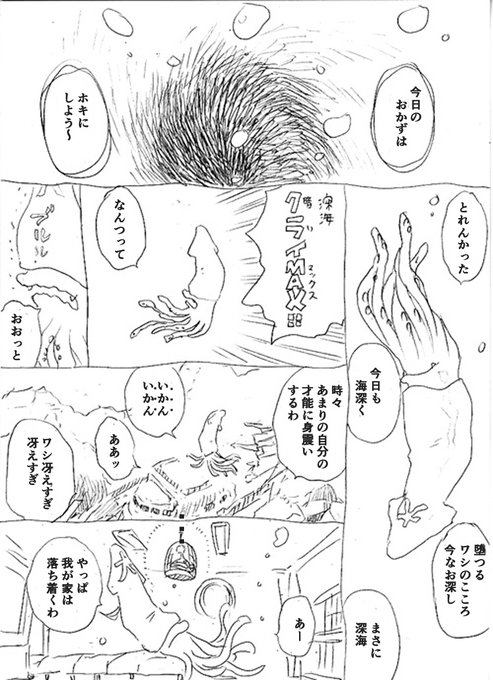 今日の
おかずは
ホキに
しよう〜
とれんかった
今日も
海深く
堕つる
ワシのこころ
今なお深し
まさに
深海
深海
暗
クライMAX!!
マックス
なんつって
ブルル
おおっと
時々
あまりの自分の
才能に身震い
するわ
いかん
いかん
ああッ
ワシ冴えすぎ
冴えすぎ
あー
やっぱ
我が家は
落ち着くわ